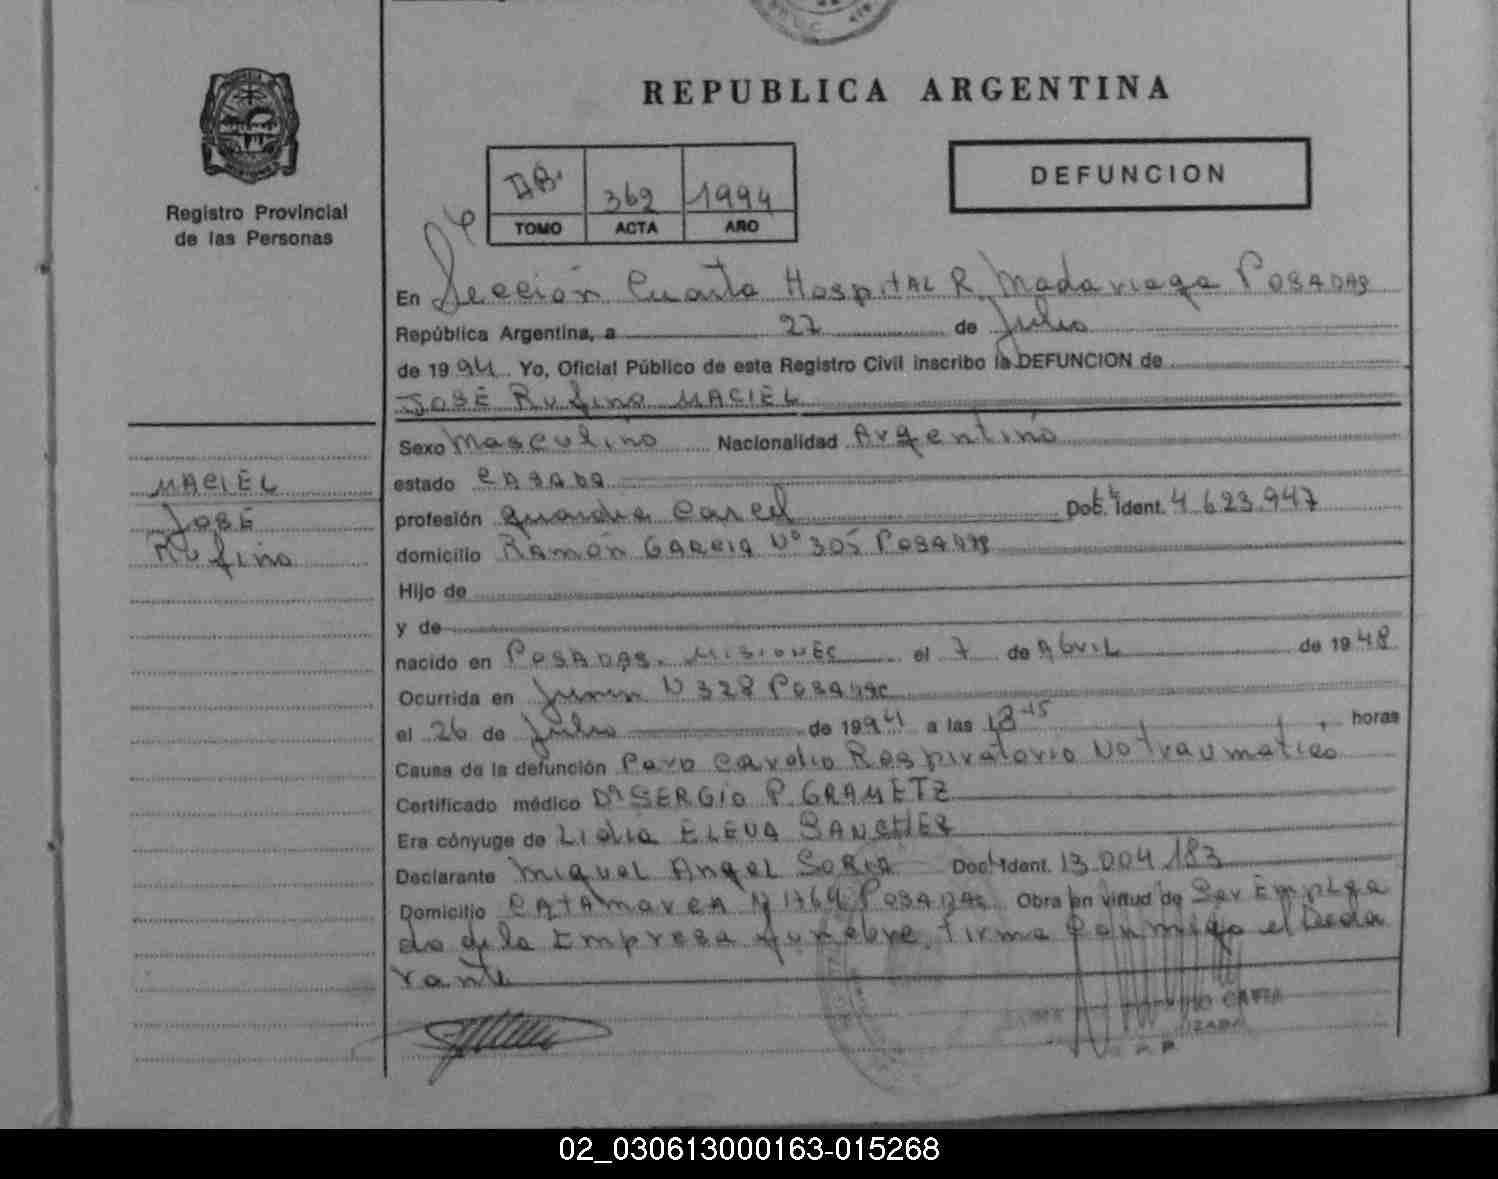 REPUBLICA ARGENTINA
Registro Provincial
de las Personas
369 1994
TOMO ACTA AÑO
DEFUNCION
En Sección Cuarta Hospital R. Madariaga POSADAS
República Argentina, a 27 de Julio
de 1994. Yo, Oficial Público de este Registro Civil inscribo la DEFUNCION de
JOSÉ Rufino MACIEL
MACIEL
JOSÉ
Rufino
Sexo Masculino Nacionalidad Argentino
estado CASADO
profesión guardia carcel Doc. Ident. 4.623.947
domicilio RAMÓN GARCIA Nº 305 POSADAS
Hijo de
y de
nacido en POSADAS. MISIONES el 7 de ABRIL de 1948
Ocurrida en Junin N 328 POSADAS
el 26 de Julio de 1994 a las 18 15 horas
Causa de la defunción Paro Cardio Respiratorio No traumatico
Certificado médico Dr SERGIO P. GRAMETZ
Era cónyuge de Lidia ELENA SANCHEZ
Declarante Miguel Angel SORIA Doc. Ident. 13.004.183
Domicilio CATAMARCA N 1764 POSADAS Obra en virtud de Ser Emplea
do de la Empresa funebre, firma conmigo el Decla
rante
02_030613000163-015268